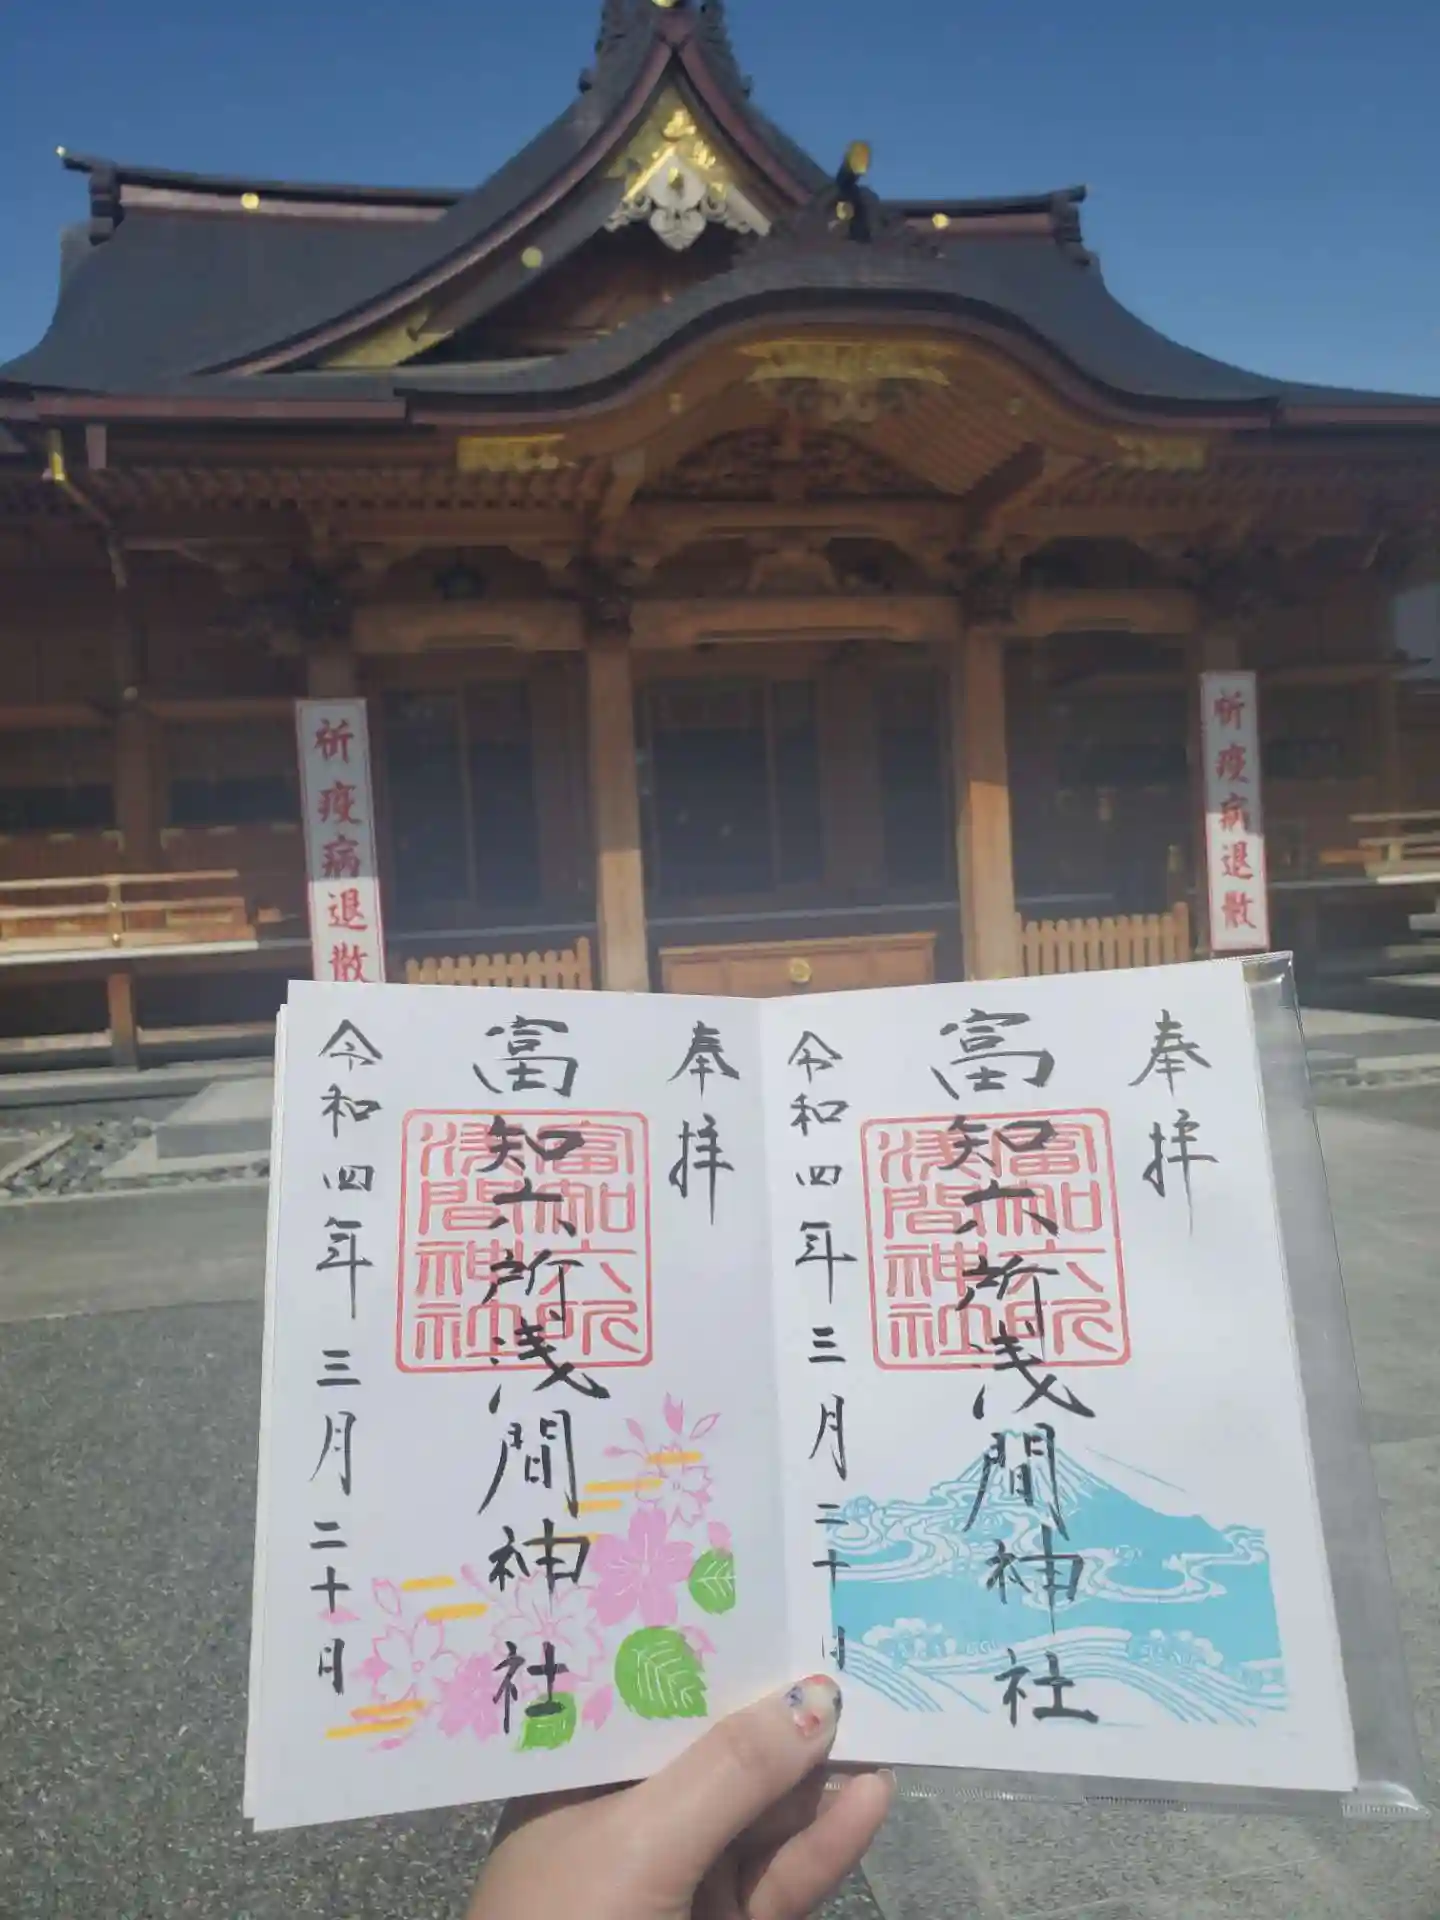 祈疫病退散
祈疫病退散
奉拝
富知六所浅間神社
富知六所
浅間神社
令和四年三月二十日
奉拝
富知六所浅間神社
富知六所
浅間神社
令和四年三月二十日